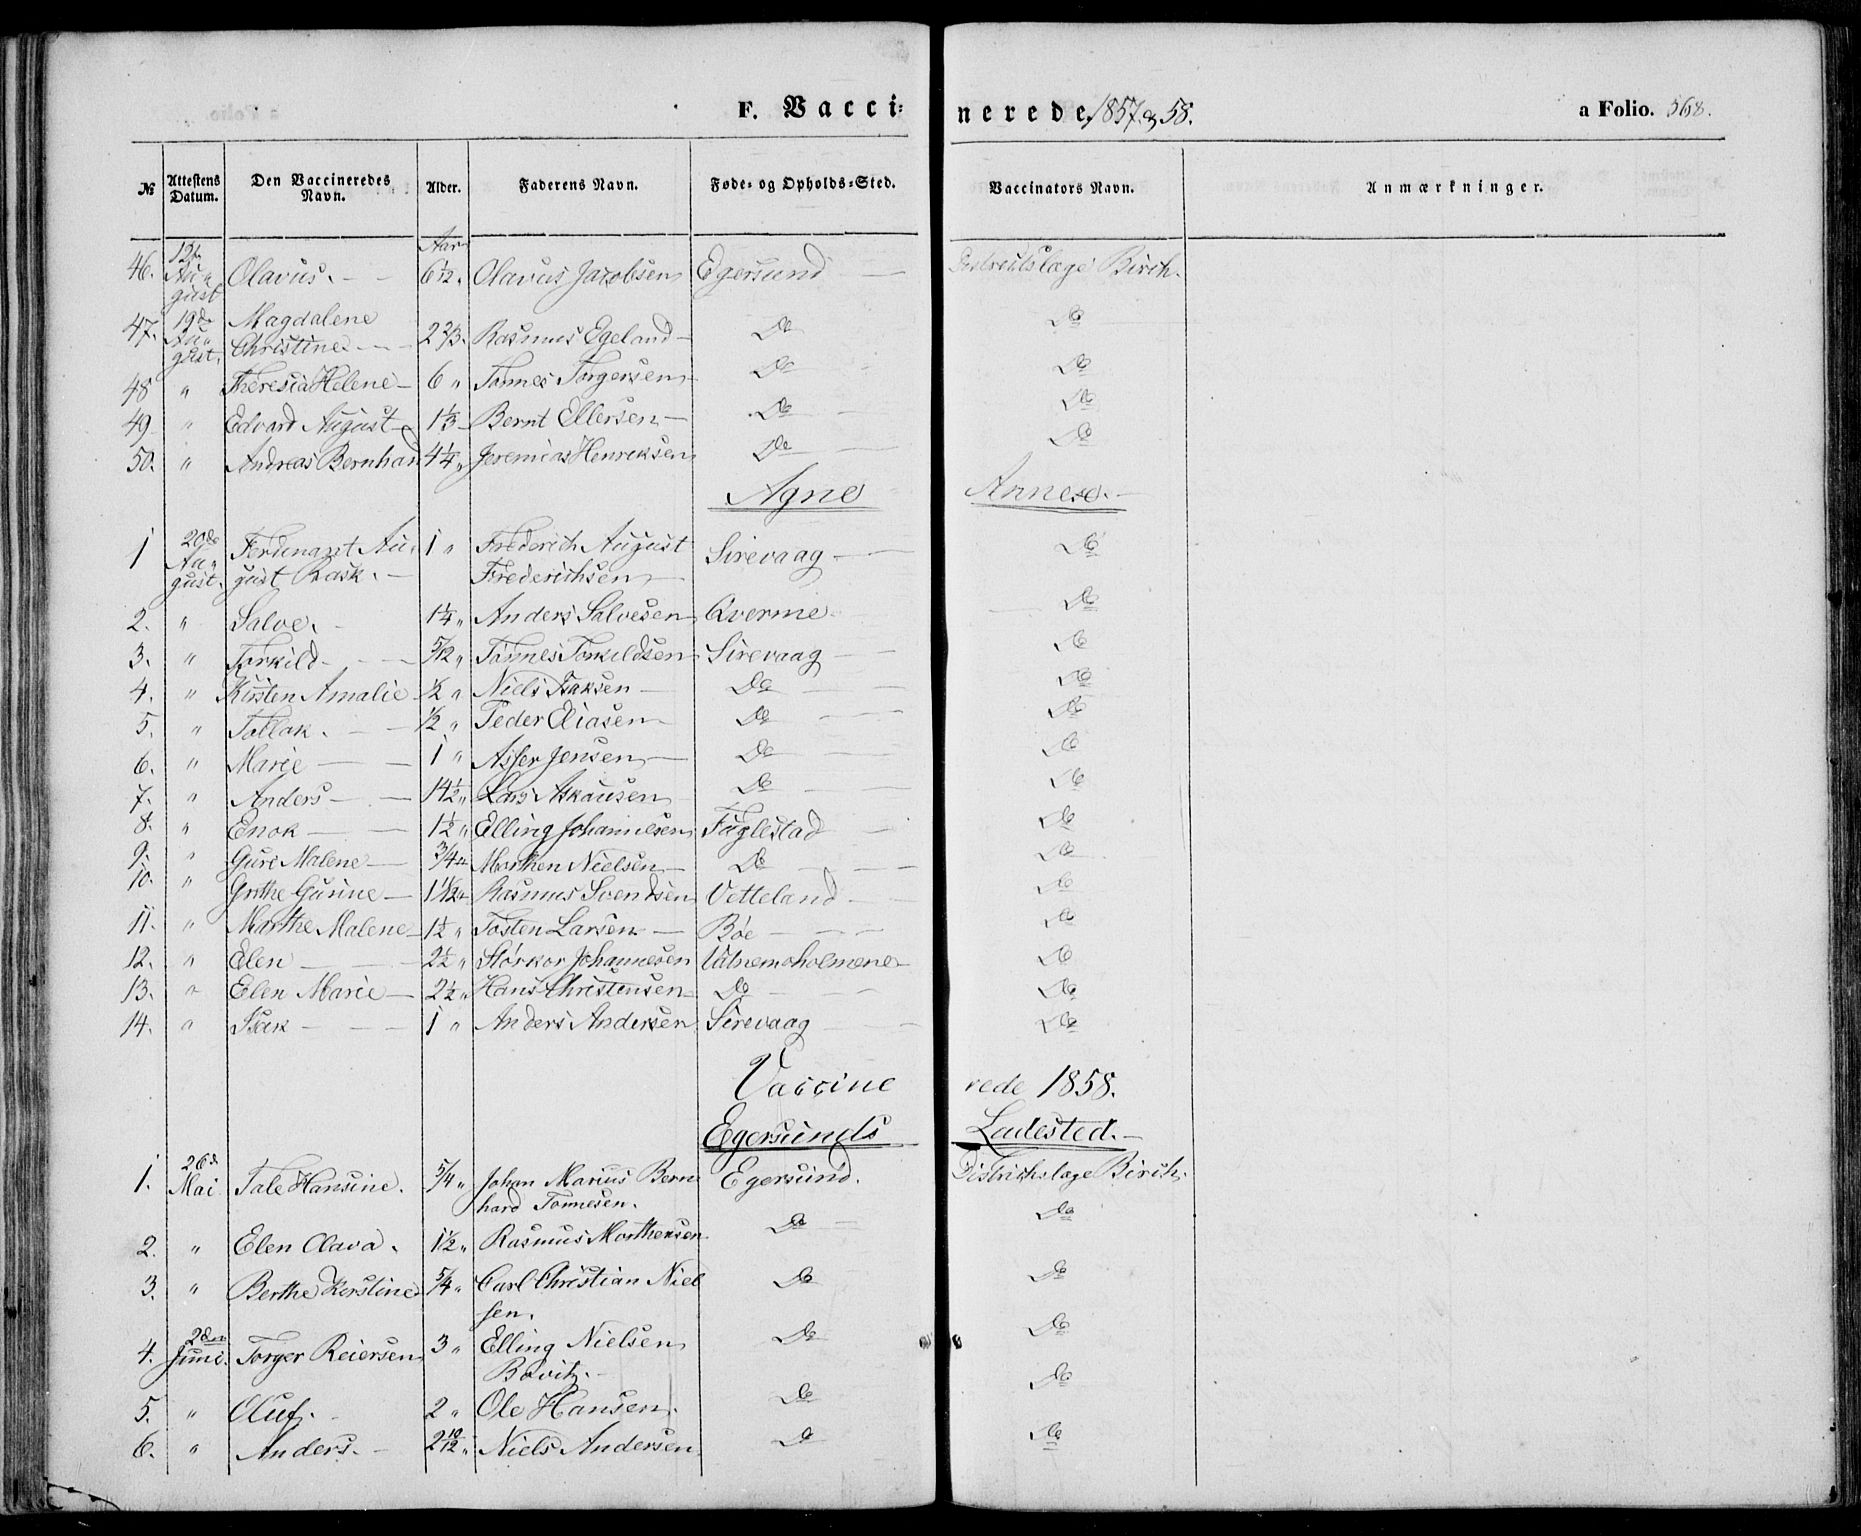 F. Vacci= nerede, 1857 & 58. a Folio. 568.
№ Attestens Datum. Den Vaccineredes Navn. Alder. Faderens Navn. Føde- og Opholds-Sted. Vaccinators Navn. Anmærkninger.
Aar
46. 12te Au= gust Olavus. 6 1/2 " Olavus Jacobsen Egersund Districtslæge Birch.
47. 19de Au= gust. Magdalene Christine. 2 2/3 " Rasmus Egeland Do Do
48 " Theresia Helene 6 " Tønnes Torgersen Do Do
49 " Edvard August 1 1/3 Bernt Ellersen Do Do
50. " Andreas Bernhard 4 1/4 " Jeremias Henriksen Do Do
Agne Annexe.
1 20de Au= gust. Ferdinant Au= gust Rask. 1 " Frederich August Frederichsen Sirevaag Do
2. " Salve. 1 1/4 " Anders Salvesen Qverme Do
3. " Torkild 5/12 " Tønnes Torkildsen Sirevaag Do
4. " Kirsten Amalie 1/2 " Niels Isaksen Do Do
5. " Tollak. 1/2 " Peder Eliasen Do Do
6. " Marie 1 " Asser Jensen Do Do
7. " Anders 14 1/2 " Lars Askousen Do Do
8. " Enok 1 1/2 " Elling Johannesen Fuglestad Do
9. " Guri Malene 3/4 " Morthen Nielsen Do Do
10. " Grethe Gurine 1 1/12 " Rasmus Svendsen Vetteland Do
11. " Marthe Malene 1 1/2 " Tosten Larsen Bøe Do
12. " Elen 2 1/2 " Størkor Johannesen Válnemsholmene Do
13. " Elen Marie 2 1/2 " Hans Christensen Do Do
14. " Isak 1 " Anders Andersen Sirevaag Do
Vaccine rede 1858.
Egersunds Ladested.
1. 26de Mai Tale Hansine. 5/4 " Johan Marius Bern hard Tønnesen. Egersund. Districtslæge Birch.
2. " Elen Olava. 1 1/2 " Rasmus Morthensen Do Do
3. " Berthe Kerstine 5/4 " Carl Christian Niel sen. Do Do
4. 2den Juni. Torger Reiersen 3 " Elling Nielsen Bovitz. Do Do
5. " Oluf. 2 " Ole Hansen. Do Do
6. " Anders. 2 10/12 " Niels Andersen Do Do